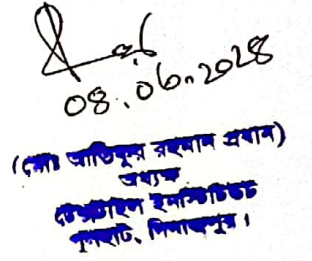 08.06.2028
(মোঃ আতিকুর রহমান প্রধান)
অধ্যক্ষ
টেক্সটাইল ইনস্টিটিউট
পুলহাট, দিনাজপুর।